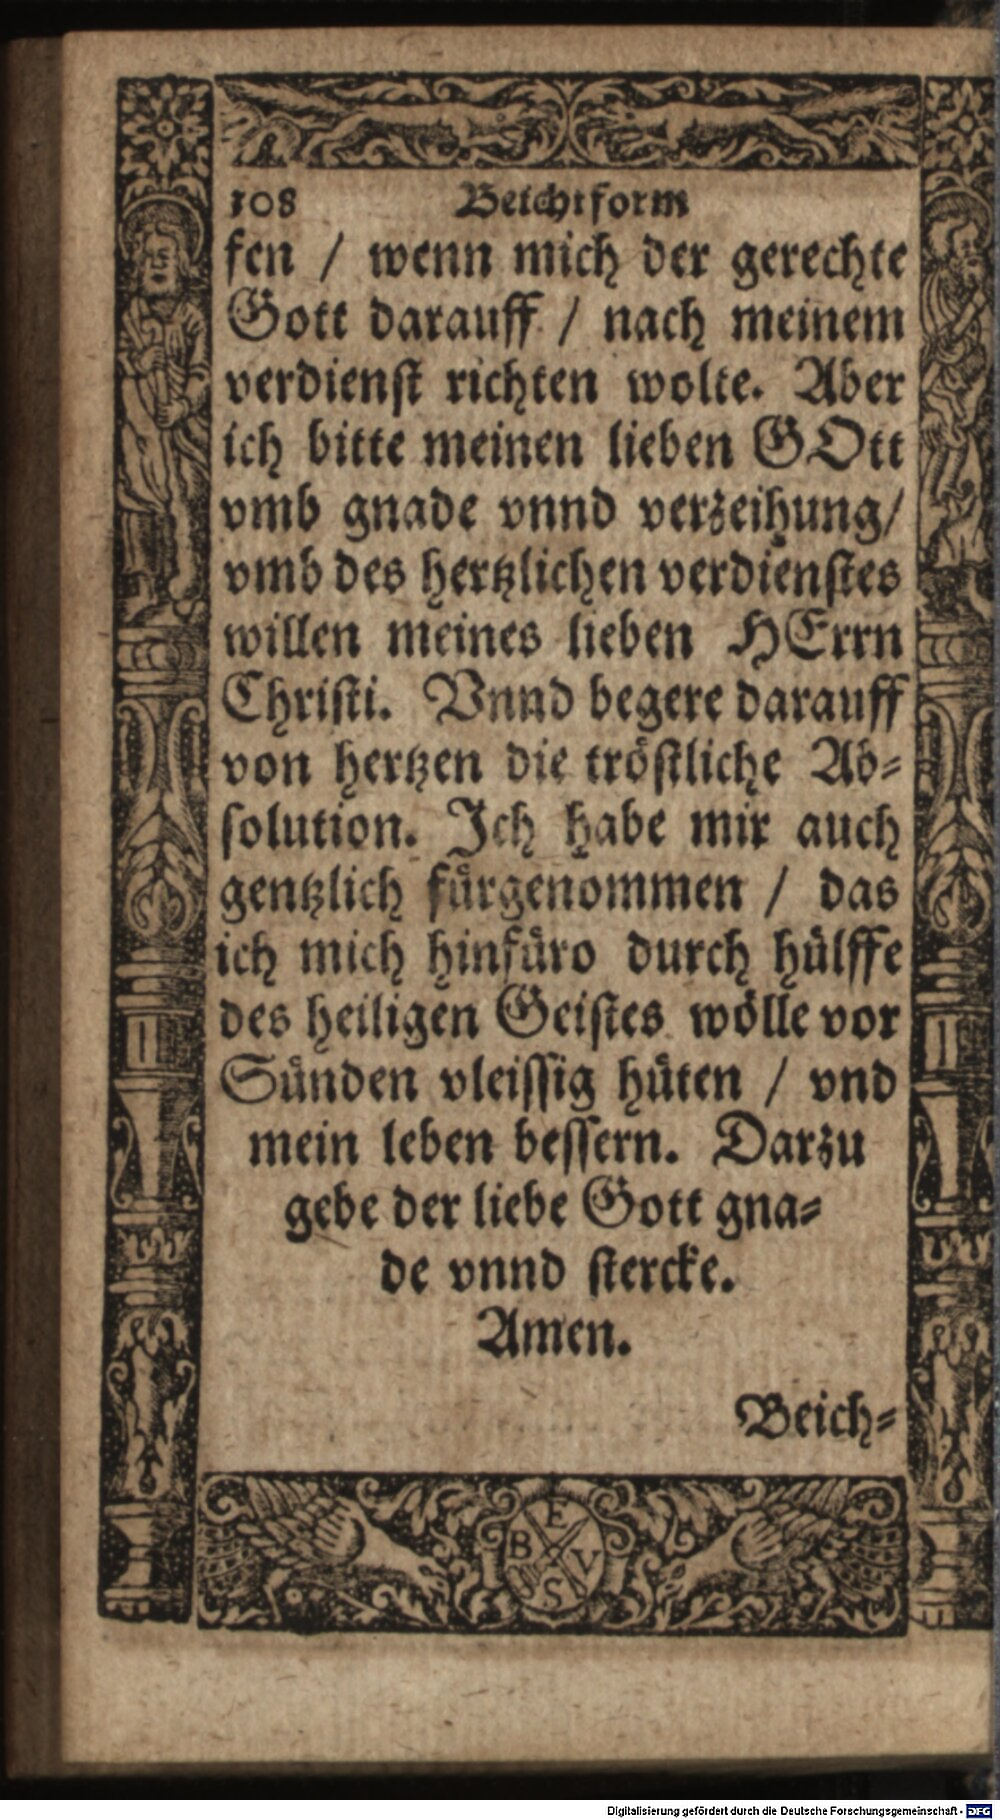 108 Beichtform
fen / wenn mich der gerechte
Gott darauff / nach meinem
verdienst richten wolte. Aber
ich bitte meinen lieben GOtt
vmb gnade vnnd verzeihung/
vmb des hertzlichen verdienstes
willen meines lieben HErrn
Christi. Vnnd begere darauff
von hertzen die tröstliche Ab⸗
solution. Ich habe mir auch
gentzlich fürgenommen / das
ich mich hinfüro durch hülffe
des heiligen Geistes wölle vor
Sünden vleissig hüten / vnd
mein leben bessern. Darzu
gebe der liebe Gott gna⸗
de vnnd stercke.
Amen.
Beich⸗
E
B V
S
Digitalisierung gefördert durch die Deutsche Forschungsgemeinschaft - DFG